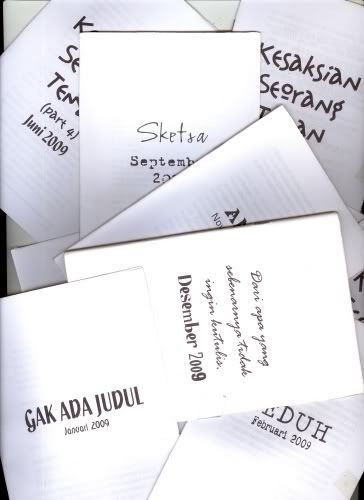 K
Se
Tem
(part 4)
Juni 2009
Sketsa
Septemb
20
Kesaksian
Seorang
an
A
No
Dari apa yang
sebenarnya tidak
ingin kutulis.
Desember 2009
GAK ADA JUDUL
Januari 2009
EDUH
Februari 2009